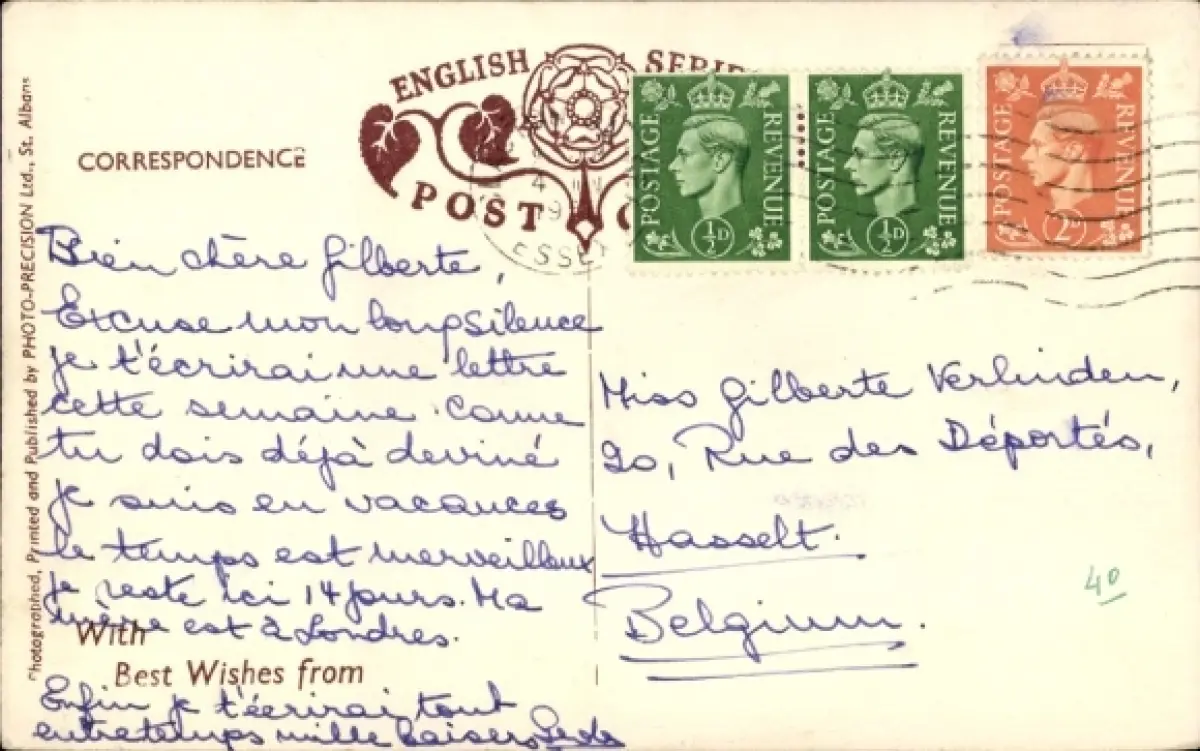 ENGLISH SERIE
POST C
CORRESPONDENCE
Photographed, Printed and Published by PHOTO-PRECISION Ltd., St. Albans
POSTAGE REVENUE ½D
POSTAGE REVENUE ½D
POSTAGE REVENUE 2D
4
9
ESSE
Bien chère Gilberte,
Excuse mon long silence
je t'écrirai une lettre
cette semaine. Comme
tu dois déjà deviné
je suis en vacances
le temps est merveilleux
je reste ici 14 jours. Ma
mère est à Londres.
With
Best Wishes from
Enfin je t'écrirai tout
entretemps mille baisers
Miss Gilberte Verlinden,
20, Rue des Déportés,
Hasselt.
Belgium.
40